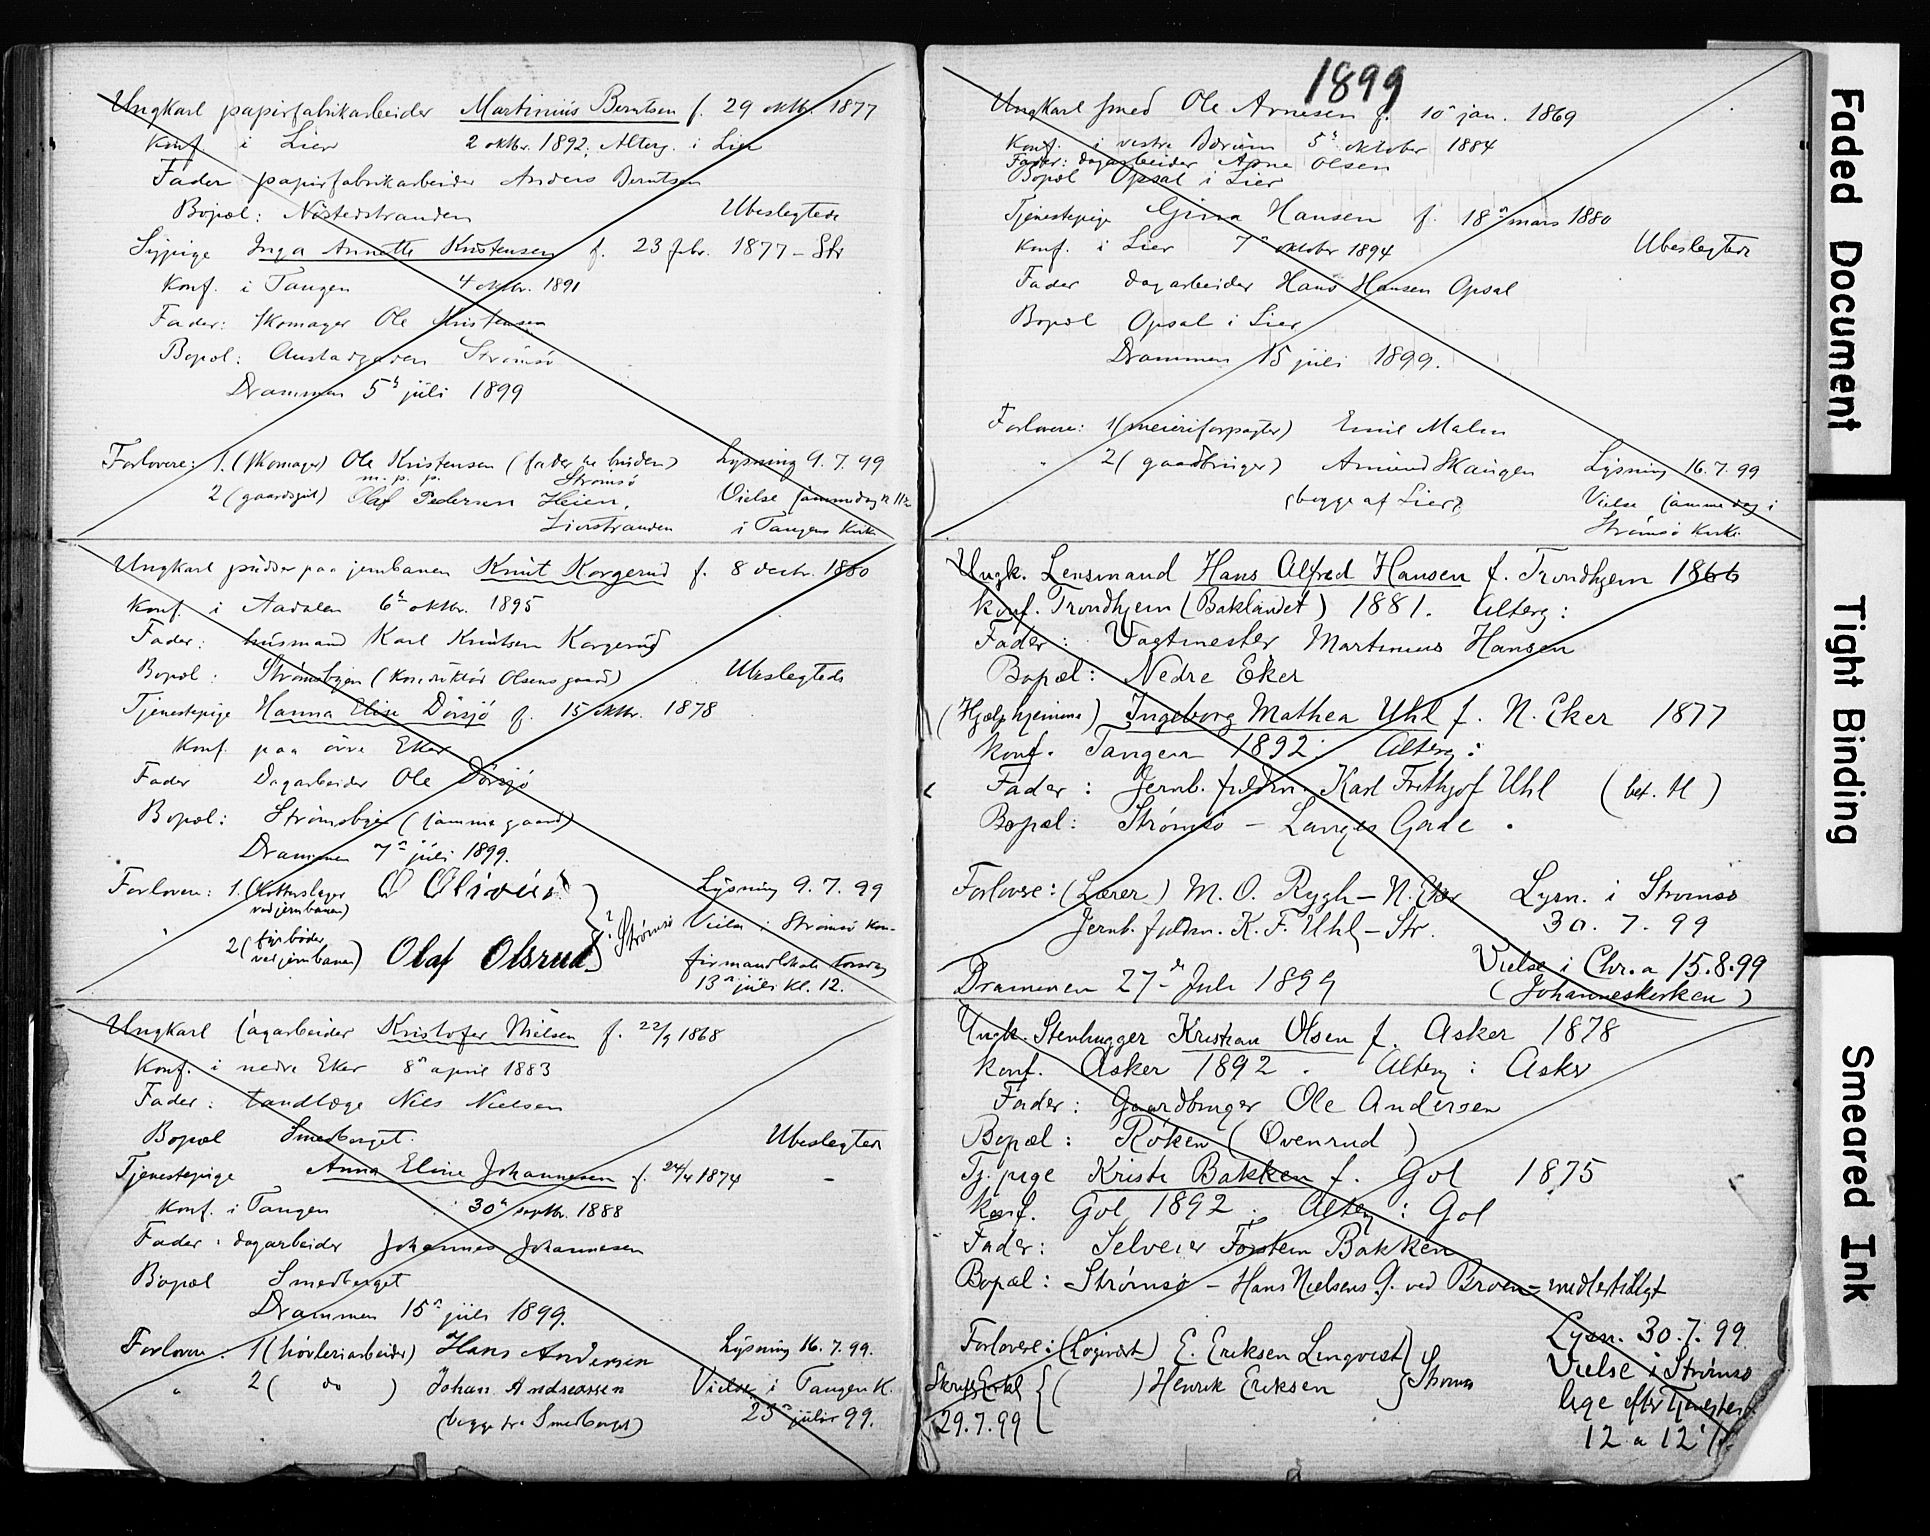 Ungkarl papirfabrikarbeider Martinius Berntsen f. 29 oktbr. 1877
Konf. i Lier 2 oktbr. 1892. Alterg. i Lier
Fader papirfabrikarbeider Anders Berntsen
Bopæl: Nøstedstranden Ubeslegtede
Sypige Inga Annette Kristensen f. 23 febr. 1877 - Str
Konf. i Tangen 4 oktbr. 1891
Fader: Skomager Ole Kristensen
Bopæl: Austadgaden Strømsø
Drammen 5 juli 1899
Forlovere: 1. (skomager) Ole Kristensen (fader til bruden) Lysning 9.7.99
m. p. p. Strømsø
2 (gaardsgut) Olaf Pedersen Heien, Vielse samme dag
Lierstranden i Tangens Kirke
Ungkarl pudser paa jernbanen Knut Korgerud f. 8 decbr. 1880
Konf. i Aadalen 6 oktbr. 1895
Fader: husmand Karl Knutsen Korgerud
Bopæl: Strømsbyen (Konduktør Olsens gaard) Ubeslegtede
Tjenestepige Hanna Elise Dørsjø f. 15 oktbr. 1878
Konf. paa øvre Eker
Fader Dagarbeider Ole Dørsjø
Bopæl: Strømsbyen (samme gaard)
Drammen 7 juli 1899.
Forlovere: 1. (Kottenslager O Olivius Lysning 9.7.99
ved jernbanen)
Strømsø Vielse i Strømsø Kon-
2 (fyrbøder
ved jernbanen) Olaf Olsrud firmandlokale torsdag
13 juli kl. 12.
Ungkarl sagarbeider Kristofer Nielsen f. 22/9 1868
Konf. i nedre Eker 8 april 1883
Fader: tandlæge Nils Nielsen
Bopæl Smedberget. Ubeslegtede
Tjenestepige Anna Eline Johannesen f. 24/4 1874
Konf. i Tangen 30 septbr. 1888
Fader: dagarbeider Johannes Johannesen
Bopæl Smedberget
Drammen 15 juli 1899.
Forlovere: 1 (høvleriarbeider) Hans Andersen Lysning 16.7.99.
" 2 ( do ) Johan Andreassen Vielse i Tangen K.
(begge fra Smedberget) 23 juli 99.
1899
Ungkarl smed Ole Arnesen f. 10 jan. 1869
Konf. i vestre Bærum 5 oktober 1884
Fader: dagarbeider Arne Olsen
Bopæl Opsal i Lier
Tjenestepige Gina Hansen f. 18 mars 1880
Konf. i Lier 7 oktober 1894 Ubeslegtede
Fader dagarbeider Hans Hansen Opsal
Bopæl Opsal i Lier
Drammen 15 juli 1899.
Forlovere: 1 (meieriforpagter) Emil Malm
" 2 (gaardbruger) Amund Skaugen Lysning 16.7.99
(begge af Lier) Vielse samme dag i
Strømsø Kirke
Ungk. Lensmand Hans Alfred Hansen f. Trondhjem 1866
Konf. Trondhjem (Baklandet) 1881. Alterg:
Fader: Vagtmester Martinius Hansen
Bopæl: Nedre Eker
(Hjælp hjemme) Ingeborg Mathea Uhl f. N. Eker 1877
Konf. Tangen 1892. Alterg:
Fader: Jernb. fuldm. Karl Frithjof Uhl (bef. Ul)
Bopæl: Strømsø - Langes Gade.
Forlovere: (Lærer) M. O. Rygh - N. Eker Lysn. i Strømsø
Jernb. fuldm. K. F. Uhl - Str. 30.7.99
Vielse i Chr.a 15.8.99
Drammen 27 Juli 1899 (Johanneskirken)
Ungk. Stenhugger Kristian Olsen f. Asker 1878
Konf. Asker 1892. Alterg: Asker
Fader: Gaardbruger Ole Andersen
Bopæl: Røken (Ovenrud)
Tj. pige Kristi Bakken f. Gol 1875
Konf. Gol 1892. Alterg: Gol
Fader: Selveier Torstein Bakken
Bopæl: Strømsø - Hans Nielsens G. ved Broen - midlertidigt
Forlovere: (Logivært) E. Eriksen Lingvist Lysn. 30.7.99
Strømsø Vielse i Strømsø
( ) Henrik Eriksen lige efter Tjenesten
29.7.99 12 a 12 1/2
Faded Document
Tight Binding
Smeared Ink